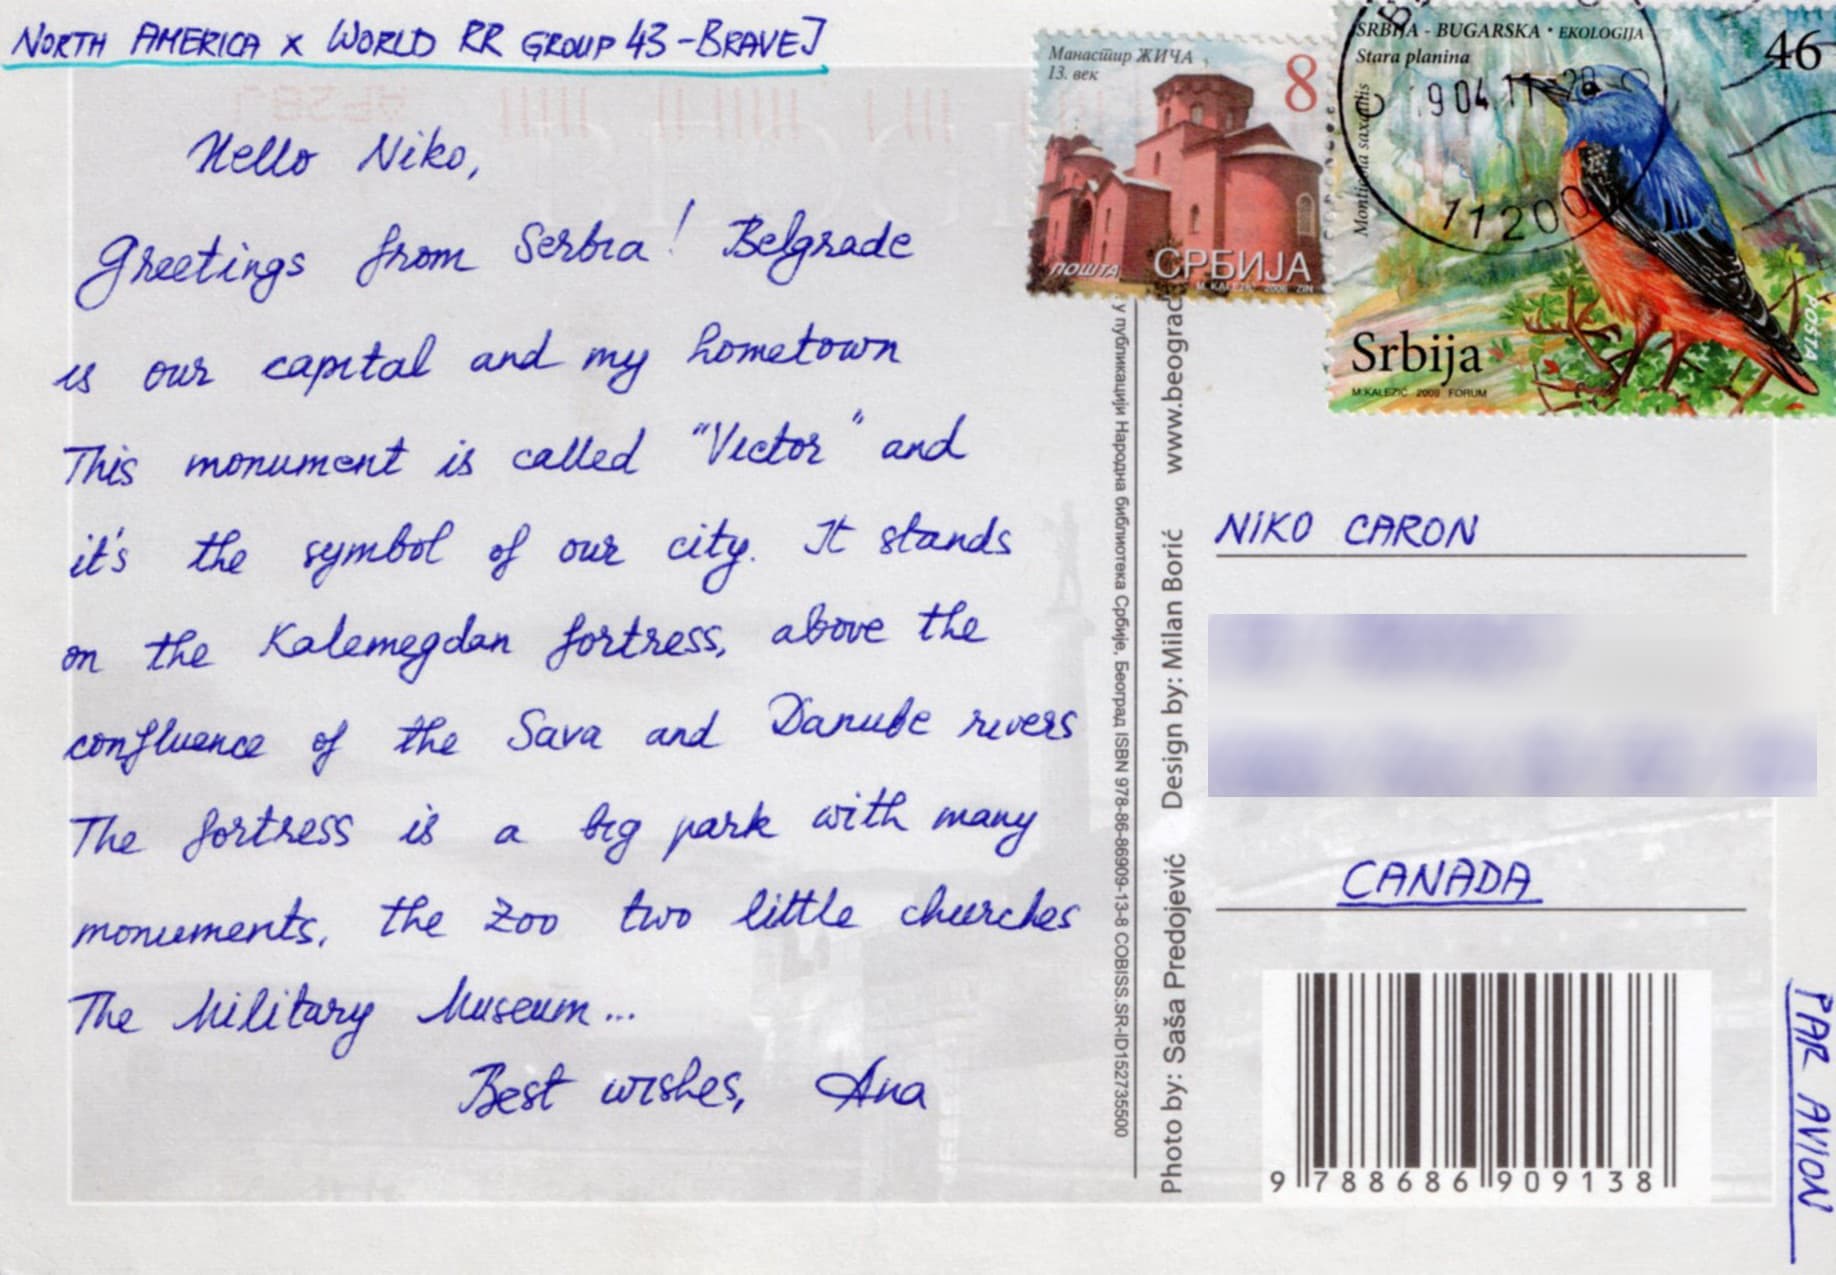 NORTH AMERICA x WORLD RR GROUP 43 - BRAVEJ
Hello Niko,
Greetings from Serbia! Belgrade
is our capital and my hometown
This monument is called "Victor" and
it's the symbol of our city. It stands
on the Kalemegdan fortress, above the
confluence of the Sava and Danube rivers
The fortress is a big park with many
monuments, the zoo two little churches
The Military Museum...
Best wishes, Ana
Манастир ЖИЧА
13. век
8
ПОШТА
СРБИЈА
M. KALEZIĆ 2006 ZIN
SRBIJA - BUGARSKA • EKOLOGIJA
Stara planina
46
Srbija
POŠTA
M.KALEZIĆ 2009 FORUM
904 11
11200
у публикацији Народна библиотека Србије, Београд ISBN 978-86-86909-13-8 COBISS.SR-ID152735500
Photo by: Saša Predojević Design by: Milan Borić www.beograd
NIKO CARON
CANADA
PAR AVION
9 788686 909138